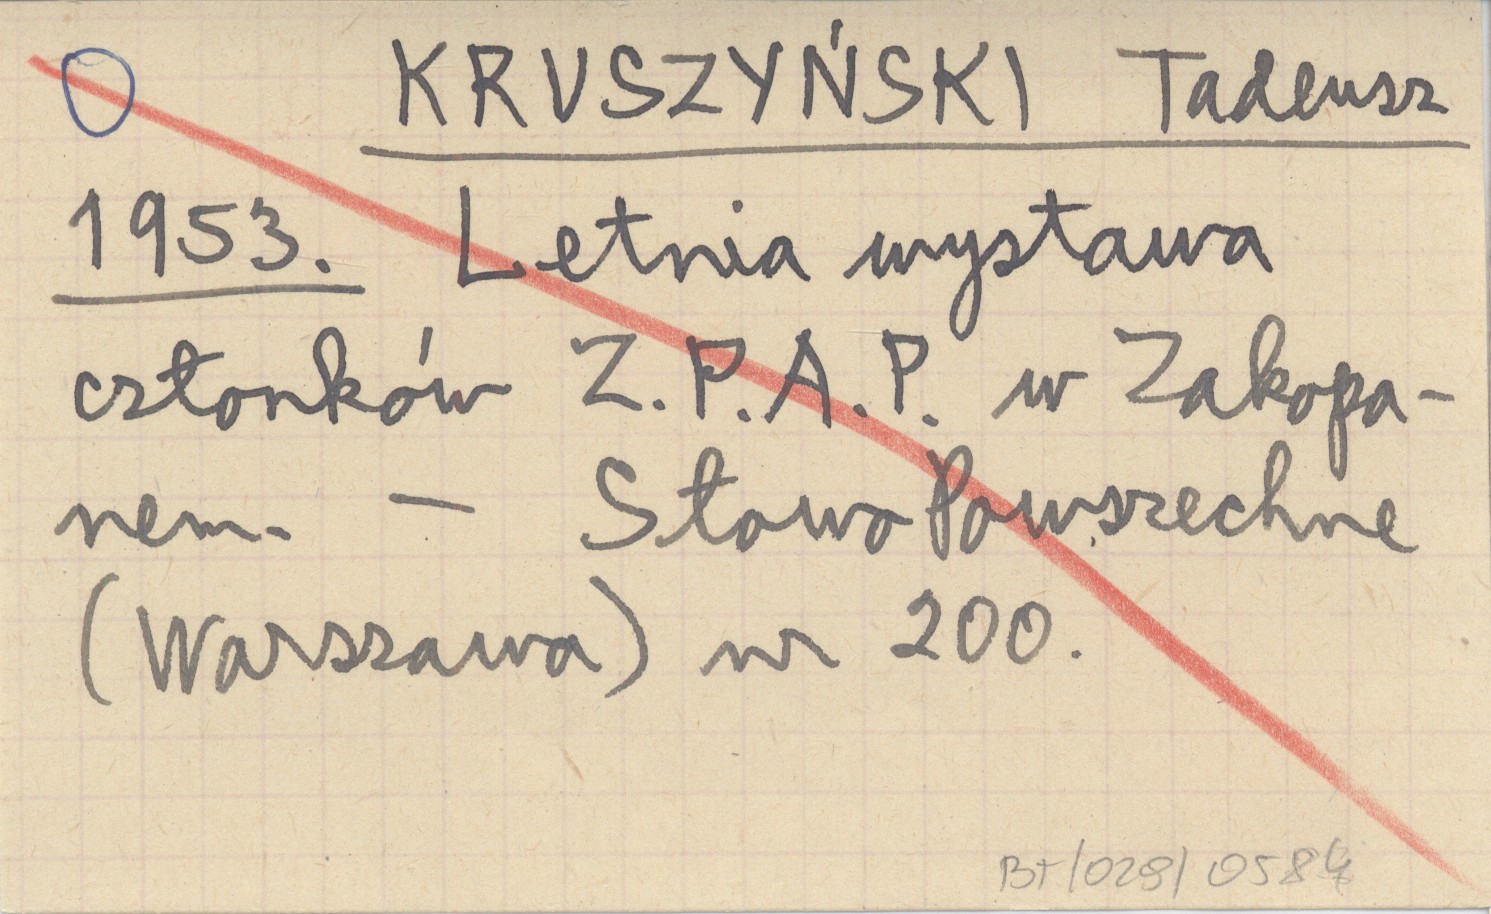 KRUSZYŃSKI Tadeusz
1953. Letnia wystawa
członków Z.P.A.P. w Zakopa-
nem. — Słowo Powszechne
(Warszawa) nr 200.
BT/028/0584